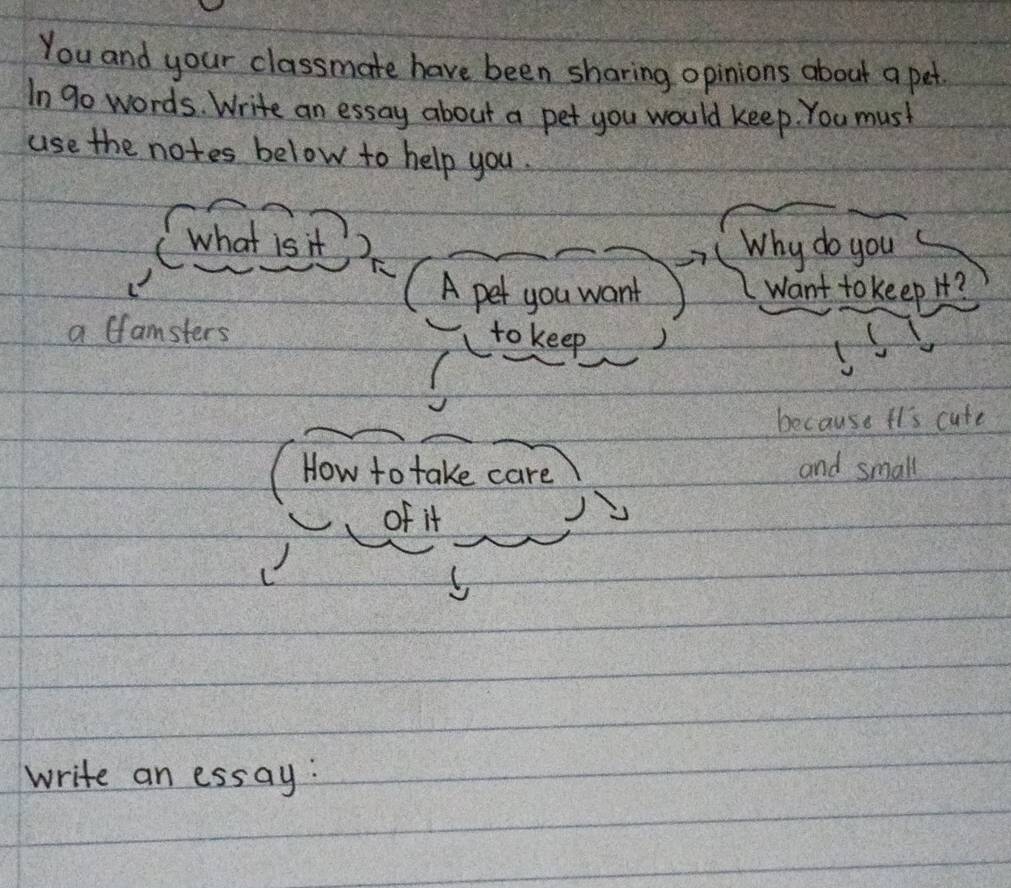 You and your classmate have been sharing opinions about a pet.
In 90 words. Write an essay about a pet you would keep. You must
use the notes below to help you.
What is it
a Hamsters
A pet you want
to keep
Why do you
want to keep it?
because it's cute
and small
How to take care
of it
write an essay: